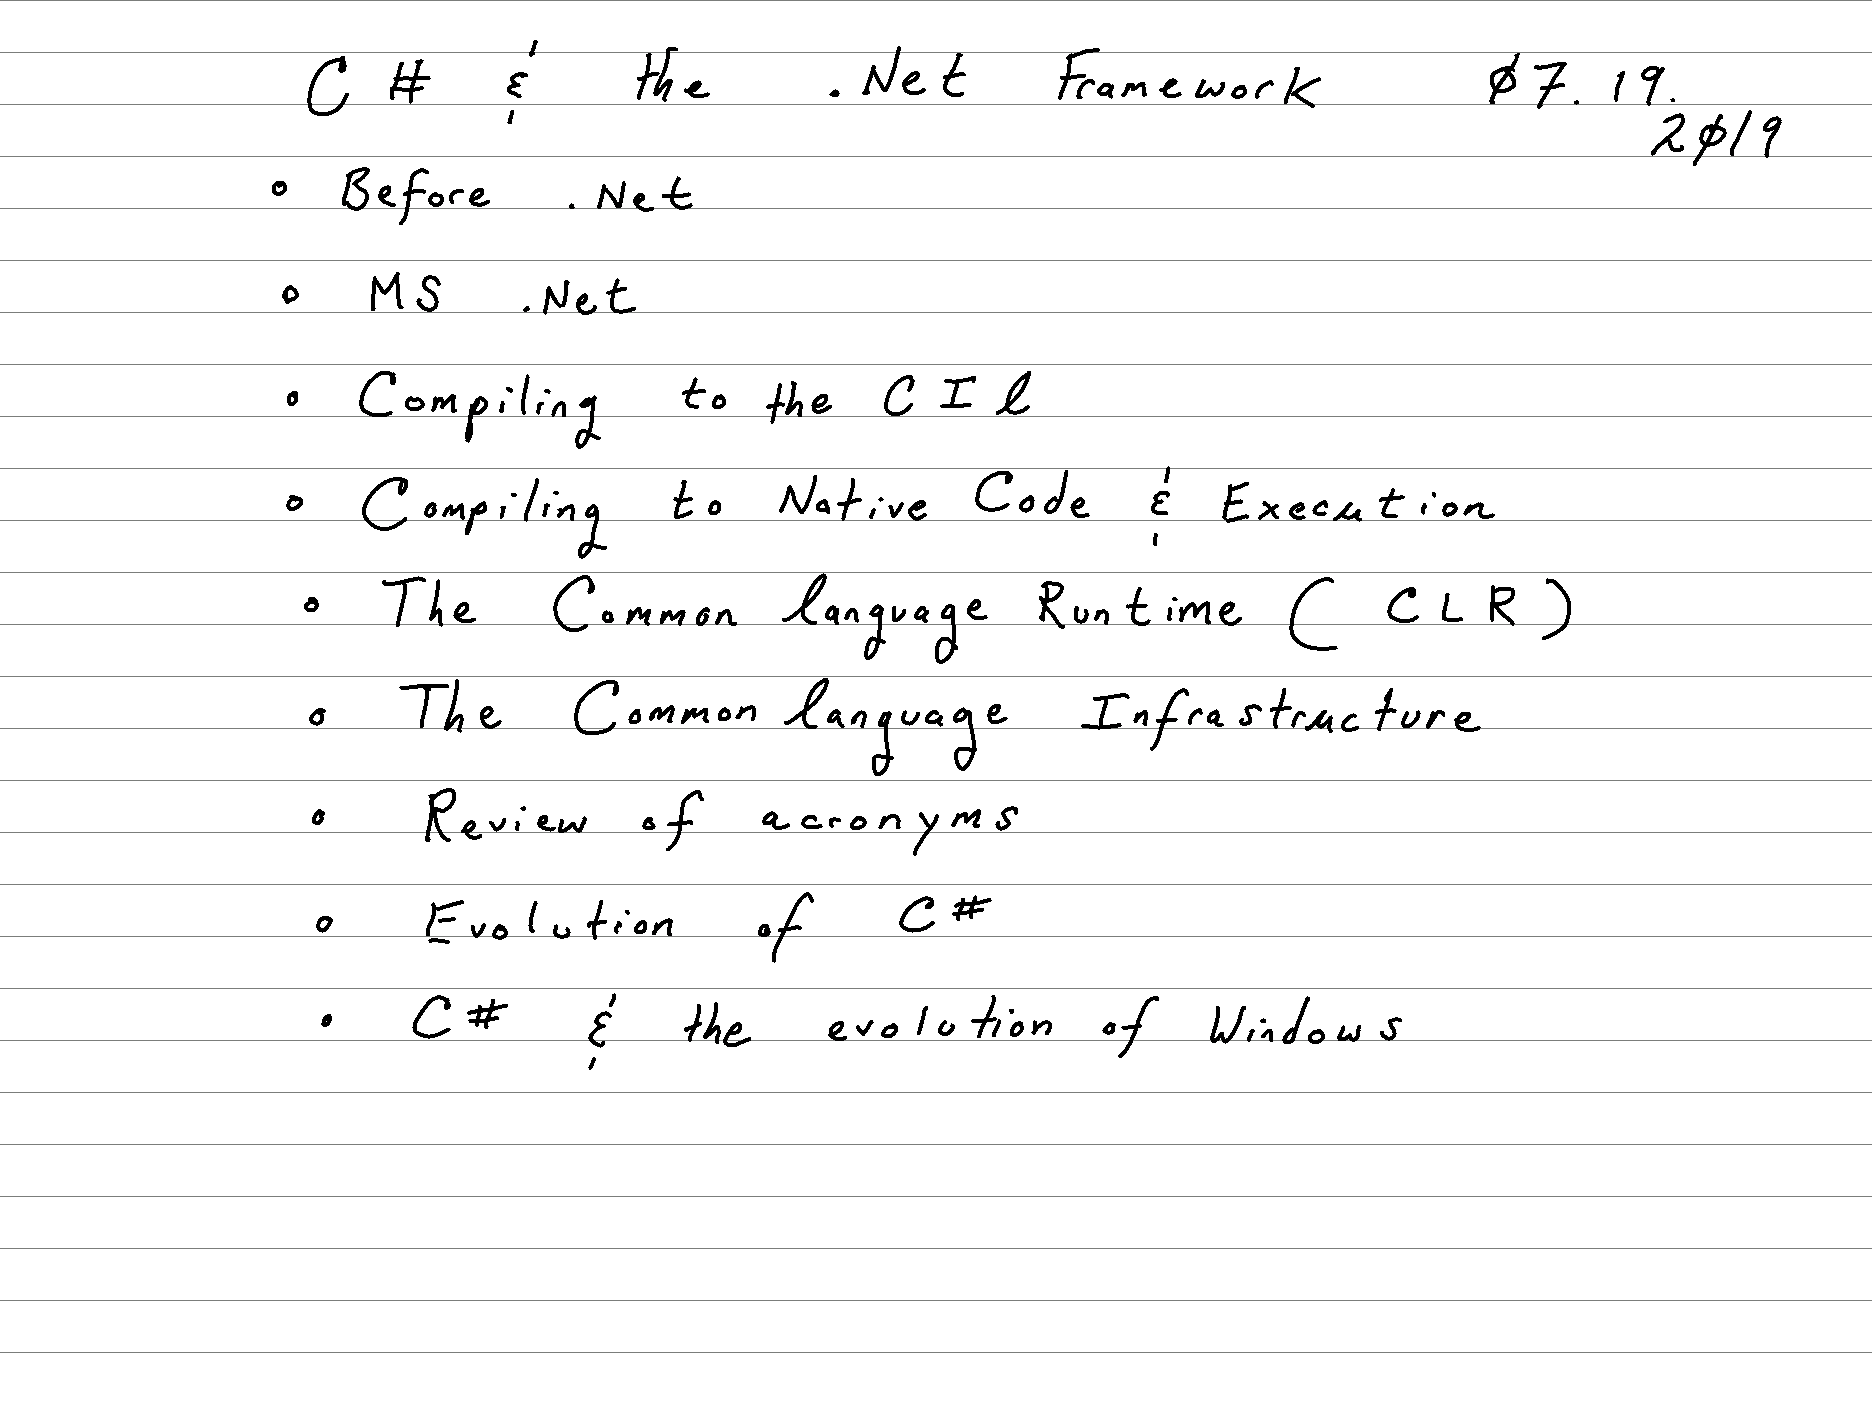 C# & the .Net Framework 07.19.
2019
• Before .Net
• MS .Net
• Compiling to the CIl
• Compiling to Native Code & Execution
• The Common language Runtime (CLR)
• The Common language Infrastructure
• Review of acronyms
• Evolution of C#
• C# & the evolution of Windows